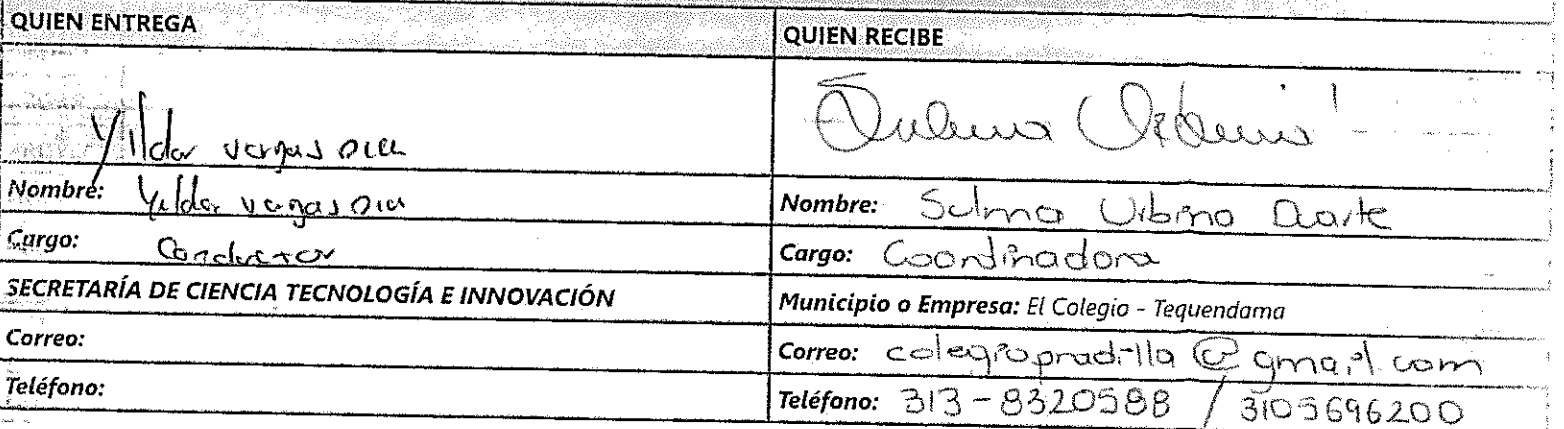 QUIEN ENTREGA
QUIEN RECIBE
Yilder vargas
Nombre: Yilder vargas
Nombre: Sulma Urbino Duarte
Cargo: Conductor
Cargo: Coordinadora
SECRETARÍA DE CIENCIA TECNOLOGÍA E INNOVACIÓN
Municipio o Empresa: El Colegio - Tequendama
Correo:
Correo: colegiopradilla@gmail.com
Teléfono:
Teléfono: 313-8320588 / 3105696200